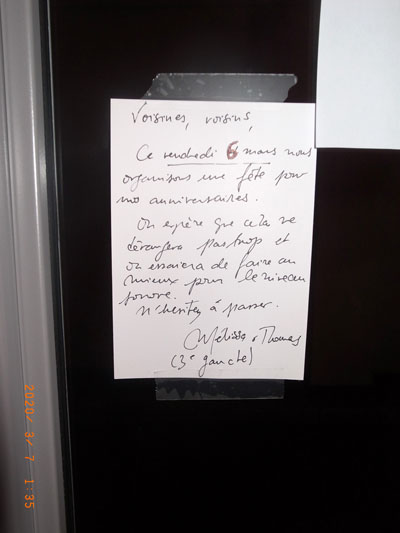 Voisines, voisins,
Ce vendredi 6 mars nous
organisons une fête pour
nos anniversaires.
On espère que cela ne
dérangera pas trop et
on essaiera de faire au
mieux pour le niveau
sonore.
N'hésitez à passer.
Mélissa & Thomas
(3e gauche)
2020/ 3/ 7 1:35